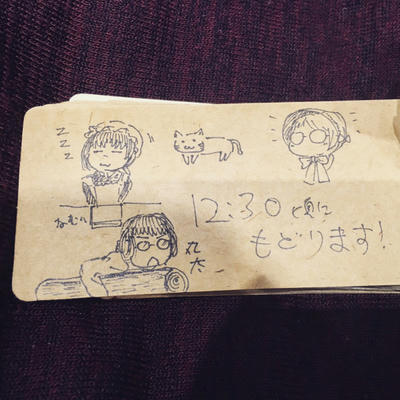 z
z
z
ねむい
12:30頃に
もどります!
丸太